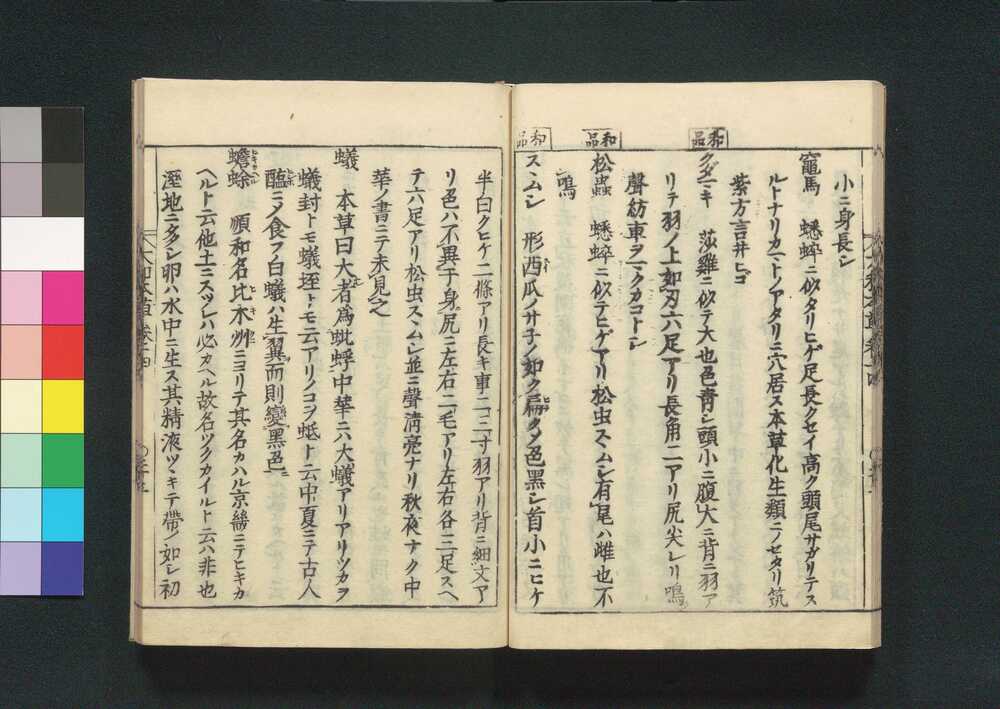 小ニ身長シ
竈馬 蟋蟀ニ似タリヒゲ足長クセイ高ク頭尾サガリテス
ルトナリカマトノアタリニ穴居ス本草化生類ニノセタリ筑
紫方言井ヒゴ
和品
クダマキ 莎雞ニ似テ大也色青シ頭小ニ腹大ニ背ニ羽ア
リテ羽ノ上如刃六足アリ長角二アリ尻尖レリ鳴
聲紡車ヲマクカコトシ
和品
松蟲 蟋蟀ニ似テヒゲアリ松虫スヽムシ有尾ハ雌也不
鳴
和品
スヽムシ 形西瓜ノサ子ノ如ク扁クメ色黑シ首小ニヒケ
半白クヒケ二條アリ長キ事二三寸羽アリ背ニ細文ア
リ色ハ不異于身尻ニ左右ニ毛アリ左右各三足スヘ
テ六足アリ松虫スヽムシ並ニ聲淸亮ナリ秋夜ナク中
華ノ書ニテ未見之
蟻 本草曰大者爲蚍蜉中華ニハ大蟻アリアリツカヲ
蟻封トモ蟻垤トモ云アリノコヲ蚳ト云中夏ニテ古人
醢ニメ食フ白蟻ハ生翼而則變黑色
蟾蜍 順和名比木ニヨリテ其名カハル京畿ニテヒキカ
ヘルト云他土ニスツレハ必カヘル故名ツクカイルト云ハ非也
溼地ニ多シ卵ハ水中ニ生ス其精液ツヽキテ帶ノ如シ初
大和本草 卷十四